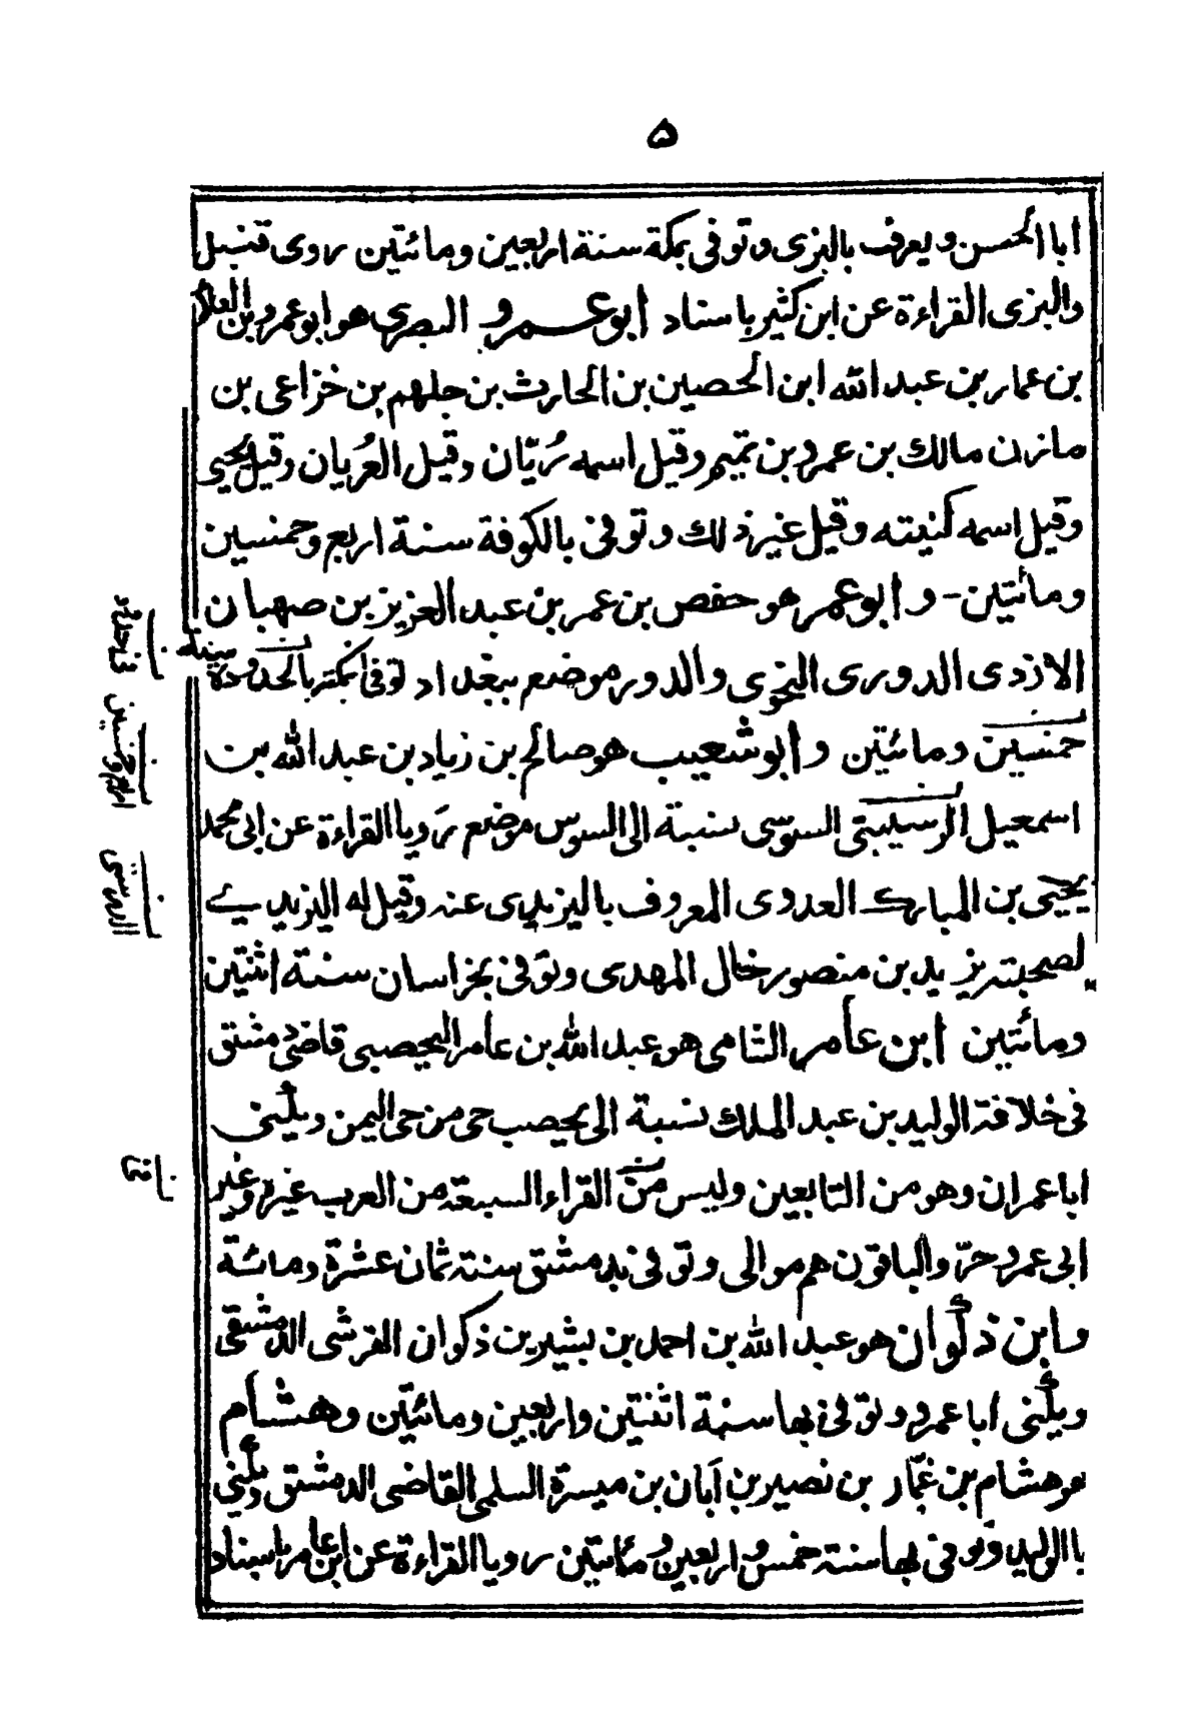 ۵
ابا الحسن و يعرف بالبزى و توفى بمكة سنة اربعين و مائتين روى قنبل
والبزى القراءة عن ابن كثير باسناد ابو عمرو البصرى هو ابو عمرو بن العلاء
بن عمار بن عبد الله ابن الحصين بن الحارث بن جلهم بن خزاعى بن
مازن مالك بن عمرو بن تميم وقيل اسمه زُبّان وقيل العُريان وقيل يحيى
وقيل اسمه كنيته وقيل غير ذلك وتوفى بالكوفة سنة اربع وخمسين
ومائتين - و ابو عمر هو حفص بن عمر بن عبد العزيز بن صهبان
الازدى الدورى النحوى والدور موضع ببغداد توفى سنة
خمسين ومائتين وابو شعيب هو صالح بن زياد بن عبد الله بن
اسمعيل السوسى نسبة الى السوس موضع رَويا القراءة عن ابى محمد
يحيى بن المبارك العدوى المعروف باليزيدى عنه وقيل له اليزيدي
لصحبته يزيد بن منصور خال المهدى وتوفى بخراسان سنة اثنتين
ومائتين ابن عامر الشامى هو عبد الله بن عامر اليحصبى قاضى دمشق
فى خلافة الوليد بن عبد الملك نسبة الى يحصب حى من حى اليمن ويكنى
ابا عمران وهو من التابعين وليس من القراء السبعة من العرب غيره وغير
ابى عمرو حرّ والباقون هم موالى وتوفى بدمشق سنة ثمان عشرة ومائة
وابن ذكوان هو عبد الله بن احمد بن بشير بن ذكوان القرشى الدمشقى
ويكنى ابا عمرو وتوفى بها سنة اثنتين واربعين ومائتين وهشام
هو هشام بن عمّار بن نصير بن اَبان بن ميسرة السلمى القاضى الدمشقى ويكنى
با الوليد وتوفى بها سنة خمس و اربعين و مائتين رويا القراءة عن ابن عامر باسناد